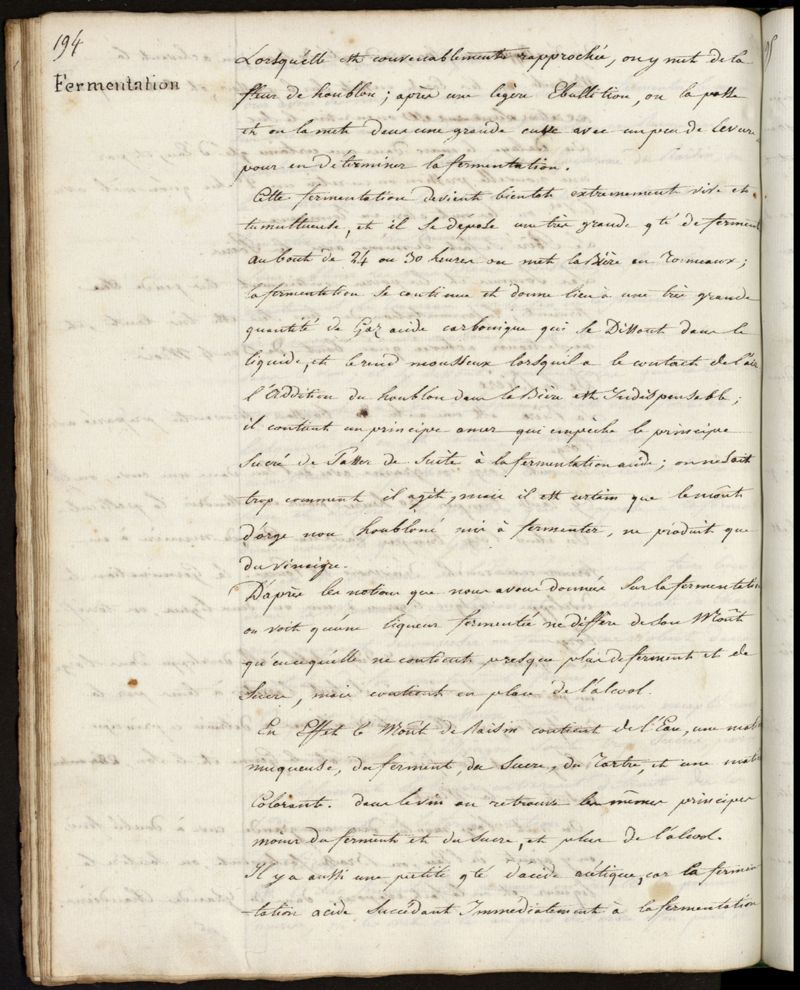 194
Fermentation
Lorsqu'elle est convenablement rapprochée, on y met de la
fleur de houblon; après une légère Ebullition, on la passe
et on la met dans une grande cuve avec un peu de Levure
pour en déterminer la fermentation.
Cette fermentation devient bientot extremement vive et
tumultueuse, et il se dépose une très grande qté de ferment
au bout de 24 ou 30 heures on met la Bière en Tonneaux;
la fermentation se continue et donne lieu à une très grande
quantité de Gaz acide carbonique qui se Dissout dans le
liquide, et le rend mousseux lorsqu'il a le contact de l'air
l'Addition du houblon dans la Bière est Indispensable;
il contient un principe amer qui empèche le principe
Sucré de Passer de Suite à la fermentation acide; on ne Sait
trop comment il agit, mais il est certain que le moût
d'orge non houbloné mis à fermenter, ne produit que
du vinaigre.
D'après les notions que nous avons données sur la fermentation
on voit qu'une liqueur fermentée ne diffère de son Moût
qu'en ce qu'elle ne contient presque plus de ferment et de
Sucre, mais contient en plus de l'alcool.
En Effet le Moût de Raisin contient de l'Eau, une mat
muqueuse, du ferment, du Sucre, du Tartre, et une mat
Colorante. dans le vin on retrouve les mêmes principes
moins du ferment et du Sucre, et plus de l'alcool.
Il y a aussi une petite qté d'acide acétique, car la fermen
tation acide Succédant Immédiatement à la fermentation